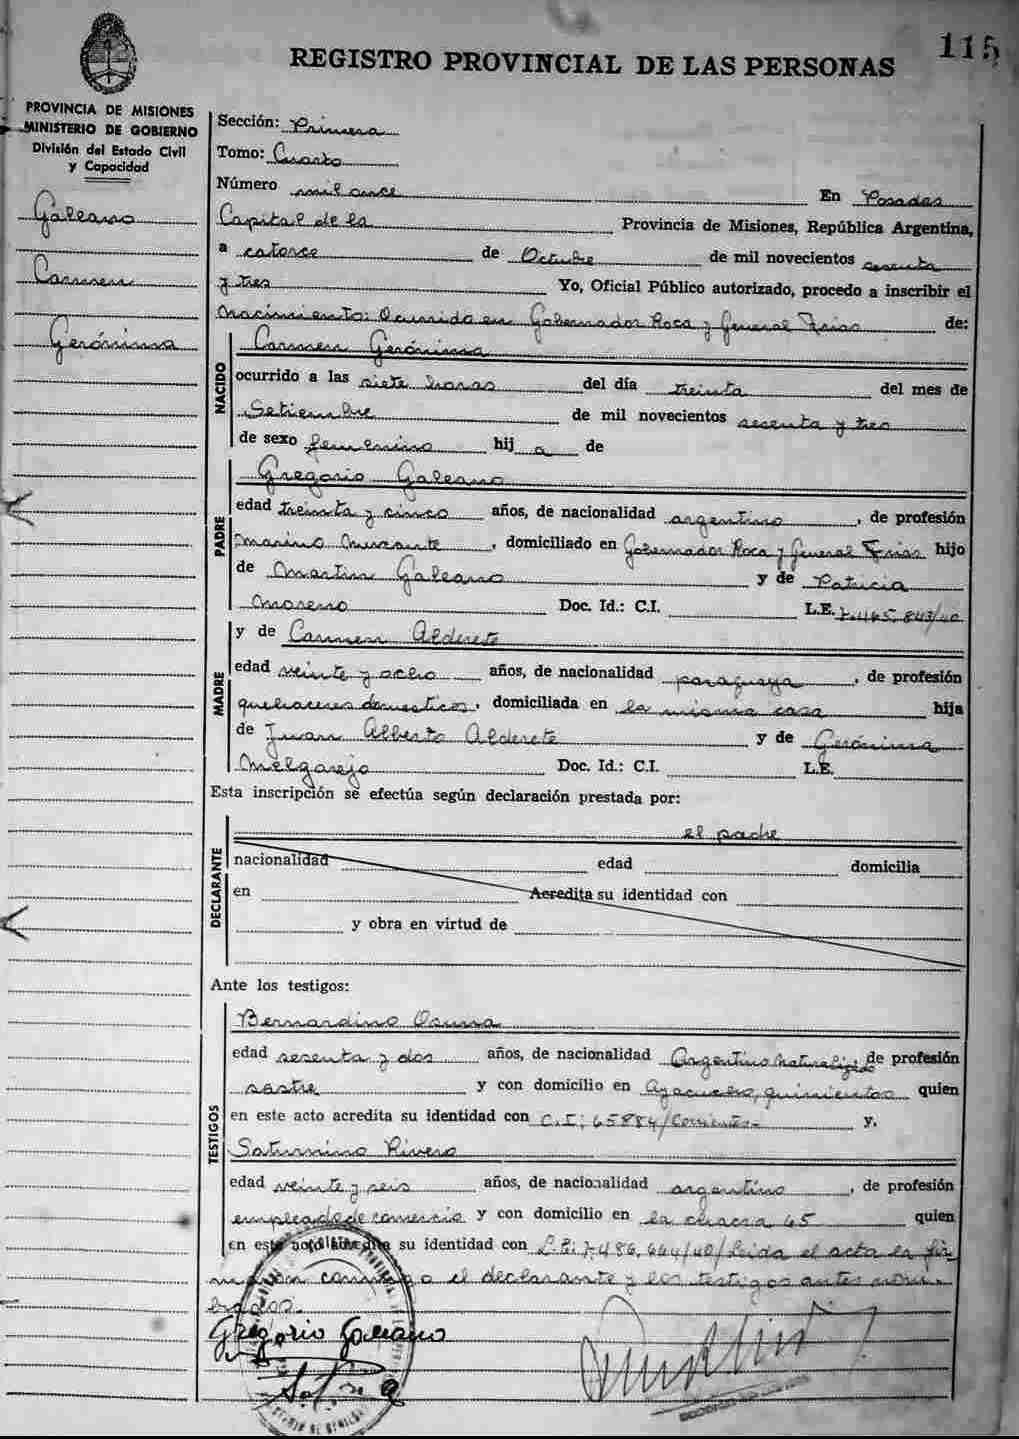 115
REGISTRO PROVINCIAL DE LAS PERSONAS
PROVINCIA DE MISIONES
MINISTERIO DE GOBIERNO
División del Estado Civil
y Capacidad
Galeano
Carmen
Gerónima
Sección: Primera
Tomo: Cuarto
Número mil once En Posadas
Capital de la Provincia de Misiones, República Argentina,
a catorce de Octubre de mil novecientos sesenta
y tres Yo, Oficial Público autorizado, procedo a inscribir el
Nacimiento: Ocurrido en Gobernador Roca y General Frias de:
NACIDO
Carmen Gerónima
ocurrido a las siete horas del día treinta del mes de
Setiembre de mil novecientos sesenta y tres
de sexo femenino hij a de
PADRE
Gregorio Galeano
edad treinta y cinco años, de nacionalidad argentino, de profesión
Marino Mercante, domiciliado en Gobernador Roca y General Frias hijo
de Martin Galeano y de Patricia
Moreno Doc. Id.: C.I. L.E. 7.465.843/40
MADRE
y de Carmen Alderete
edad veinte y ocho años, de nacionalidad paraguaya, de profesión
quehaceres domesticos, domiciliada en la misma casa hija
de Juan Alberto Alderete y de Gerónima
Melgarejo Doc. Id.: C.I. L.E.
Esta inscripción se efectúa según declaración prestada por:
DECLARANTE
el padre
nacionalidad edad domicilia
en Acredita su identidad con
y obra en virtud de
Ante los testigos:
TESTIGOS
Bernardino Osuna
edad sesenta y dos años, de nacionalidad Argentino naturalizado de profesión
sastre y con domicilio en Ayacucho, quinientos quien
en este acto acredita su identidad con C.I; 65884/Corrientes- y.
Saturnino Rivero
edad veinte y seis años, de nacionalidad argentino, de profesión
empleado de comercio y con domicilio en la chacra 65 quien
en este acto acredita su identidad con L.E; 7.486.644/40/ Leida el acta la fir-
maron conmigo el declarante y los testigos antes nom-
brados.
Gregorio Galeano